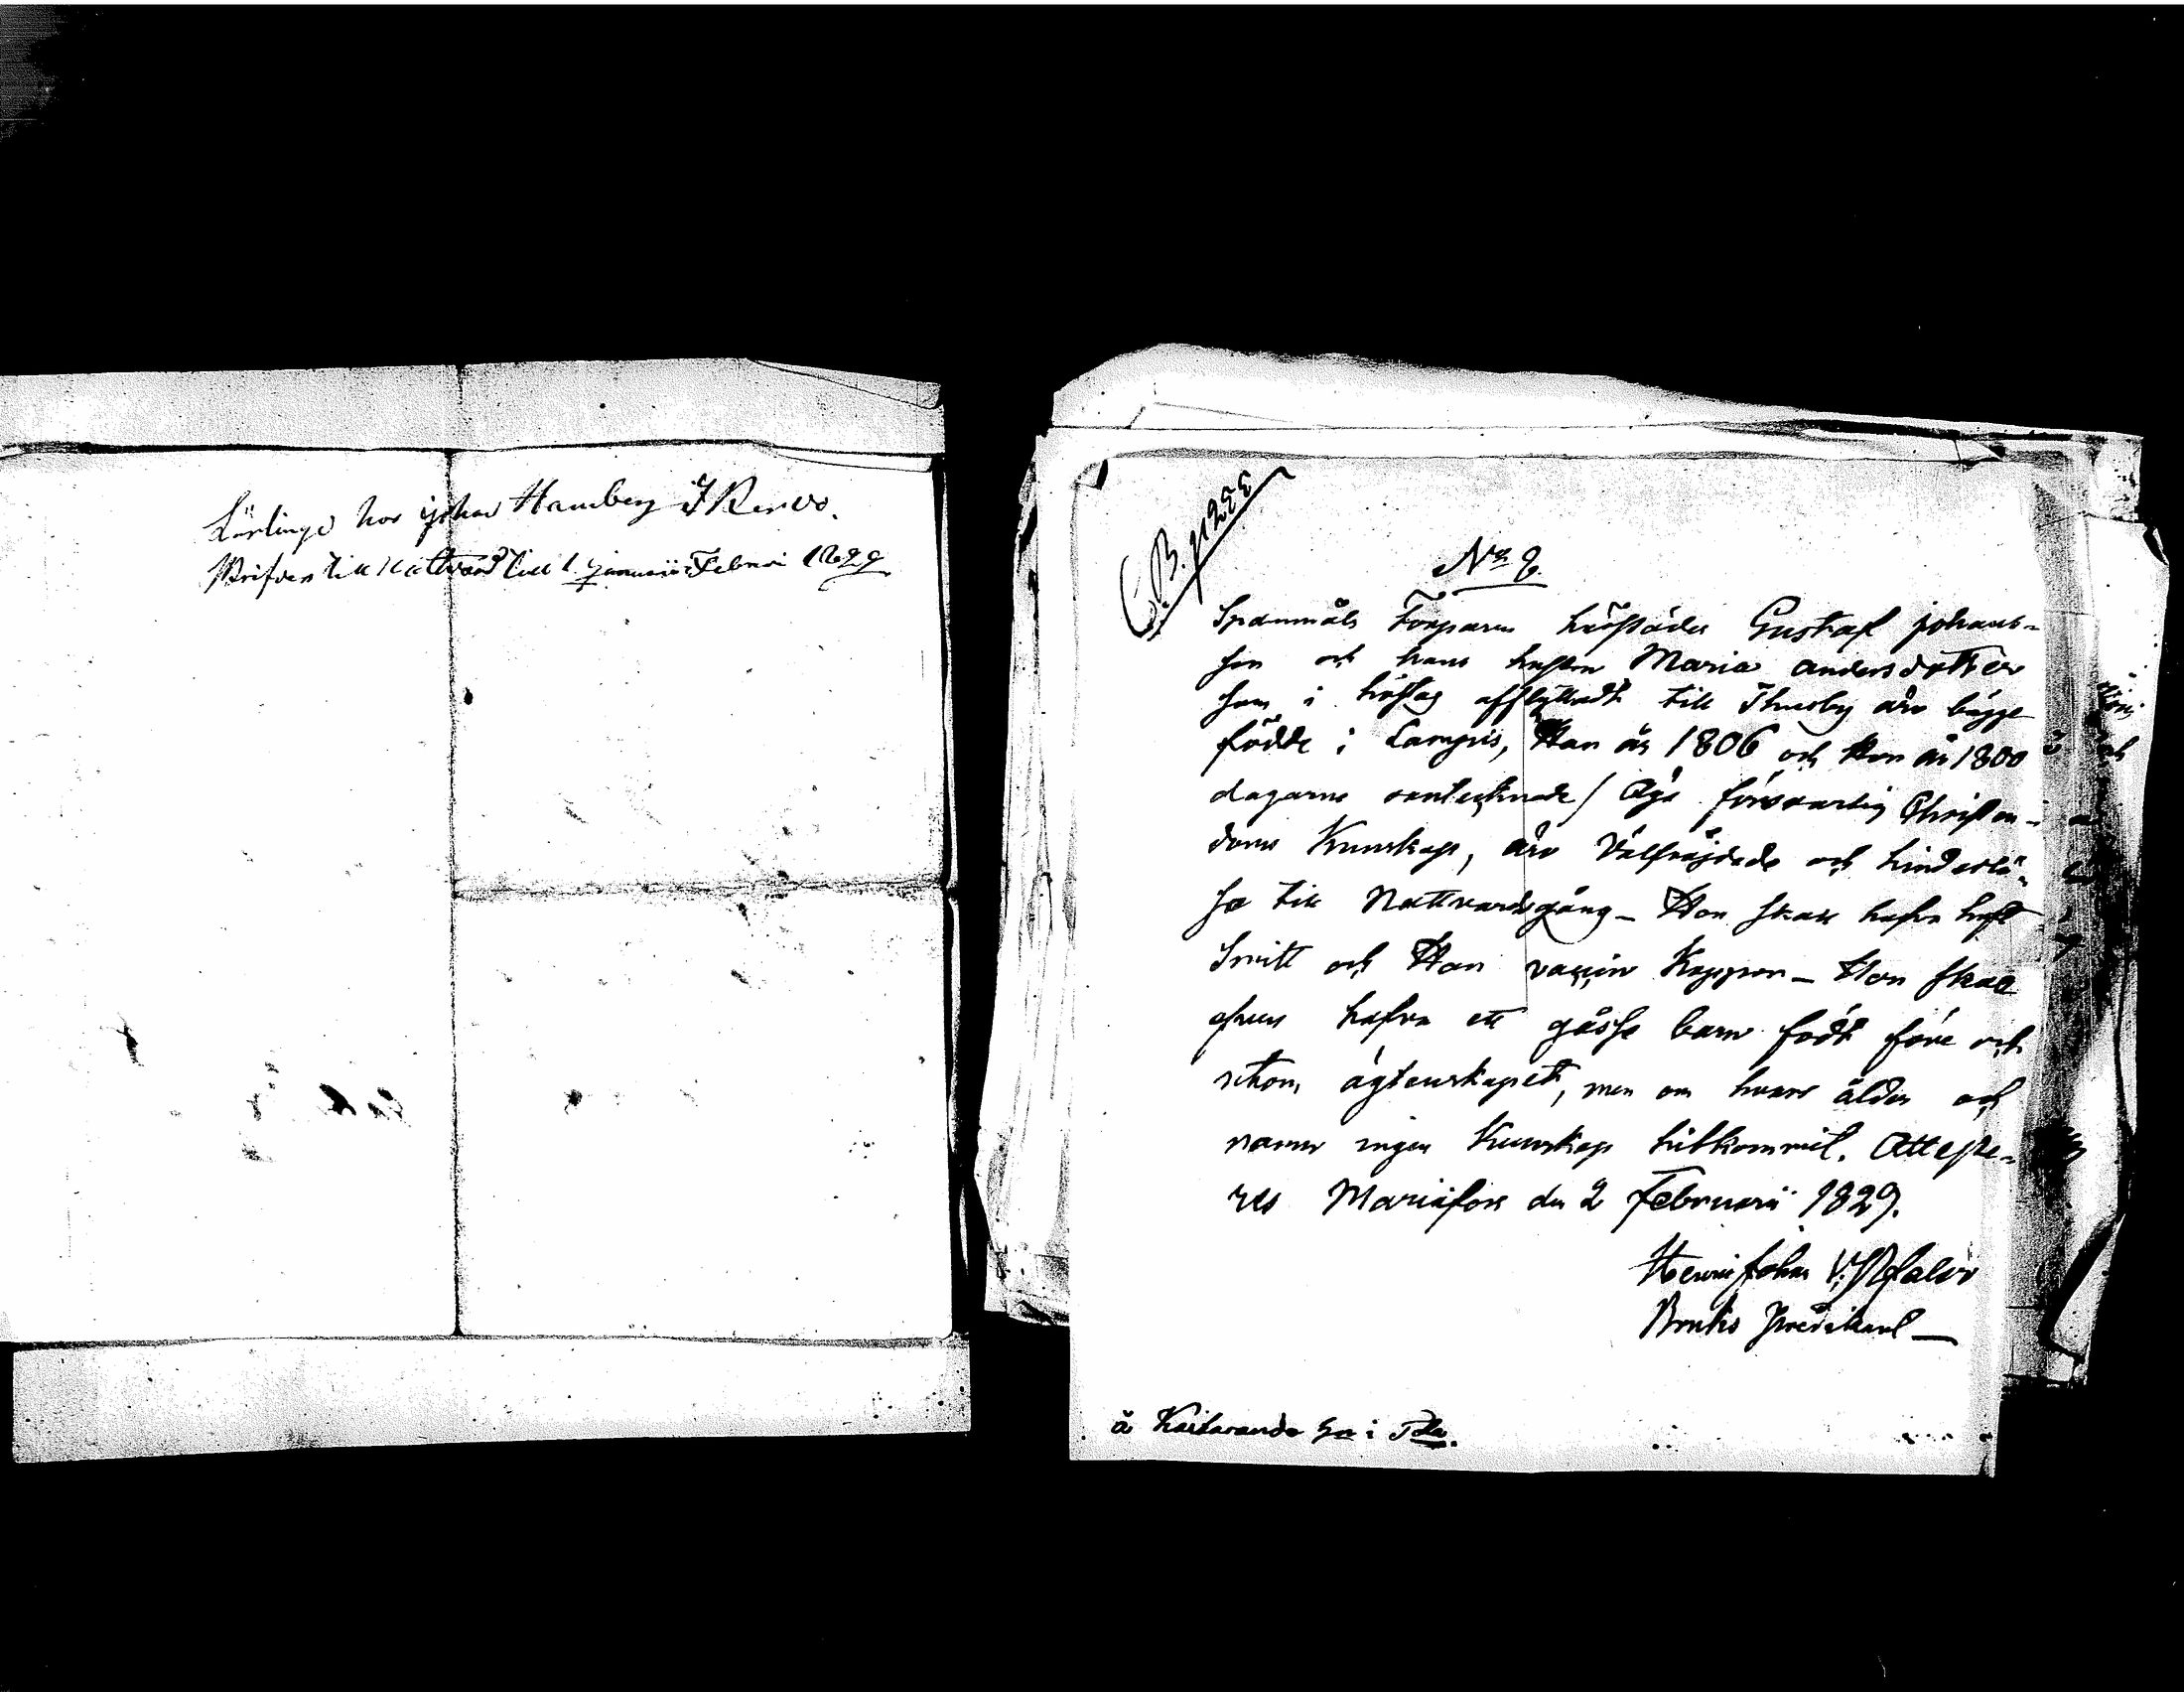 Lärlinge hos johan Hamberg I Kervo.
till Nattvard till 1 Januari Februari 1829
C.B. p.
No 8.
Spanmåls Torparen Gustaf johans-
son och hans hustru Maria andersdotter
som i höstas afflyttadt till Thusby äro bägge
födde i Lampis, Han år 1806 och Hon år 1800
dagarne oantecknade/ Äga försvarlig Christen-
doms Kunskap, äro Välfräjdade och hinderlö-
sa till Nattvardsgång – Hon skall hafva haft
Smitt och Han vaccin Koppor – Hon skall
äfven hafva ett gåsse barn födt före och
utom ägtenskapet, men om hvars ålder och
namn ingen Kunskap tillkommit. Atteste-
res Mariæfors den 2 Februarii 1829.
Henric Johan
Bruks Predikant
å